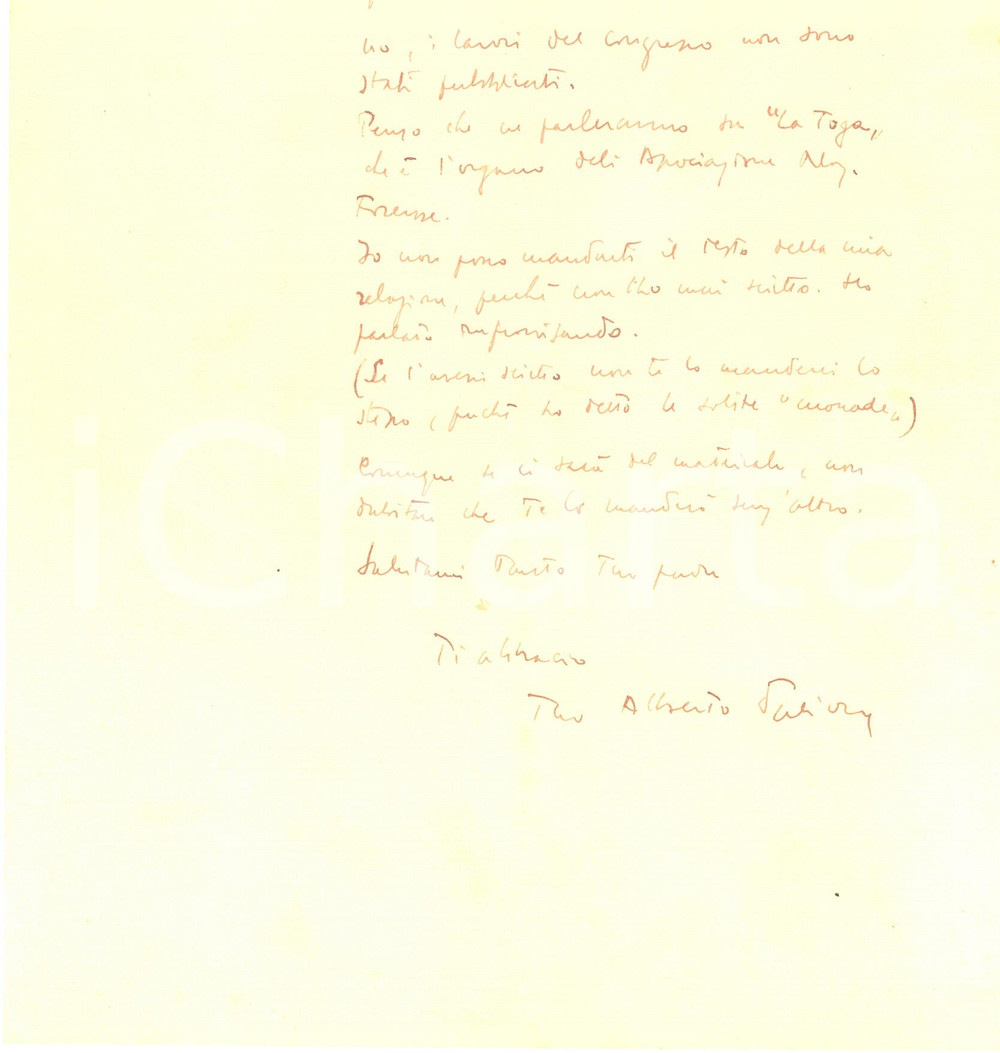 no, i lavori del congresso non sono
stati pubblicati.
Penso che ne parleranno su "La Toga„
che è l'organo dell'Associazione
Forense.
Io non posso mandarti il testo della mia
relazione, perché non l'ho mai scritto. Ho
parlato improvvisando.
(Se l'avessi scritto non te lo manderei lo
stesso, perché ho detto le solite "monade„)
Comunque se ci sarà del materiale, non
dubitare che Te lo manderò senz'altro.
Salutami Tanto Tuo padre
Ti abbraccio
Tuo Alberto
iCharta